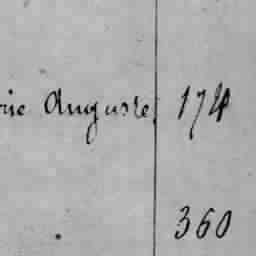 Auguste, 174
360